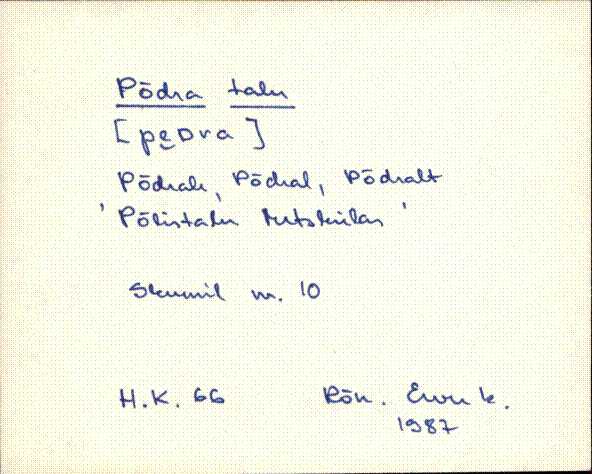 Põdra talu
[pe̮DRa]
Põdrale, Põdral, Põdralt
'Põlistalu Metskülas'
Skeemil nr. 10
H.K. 66 Rõu. Erna K.
1987